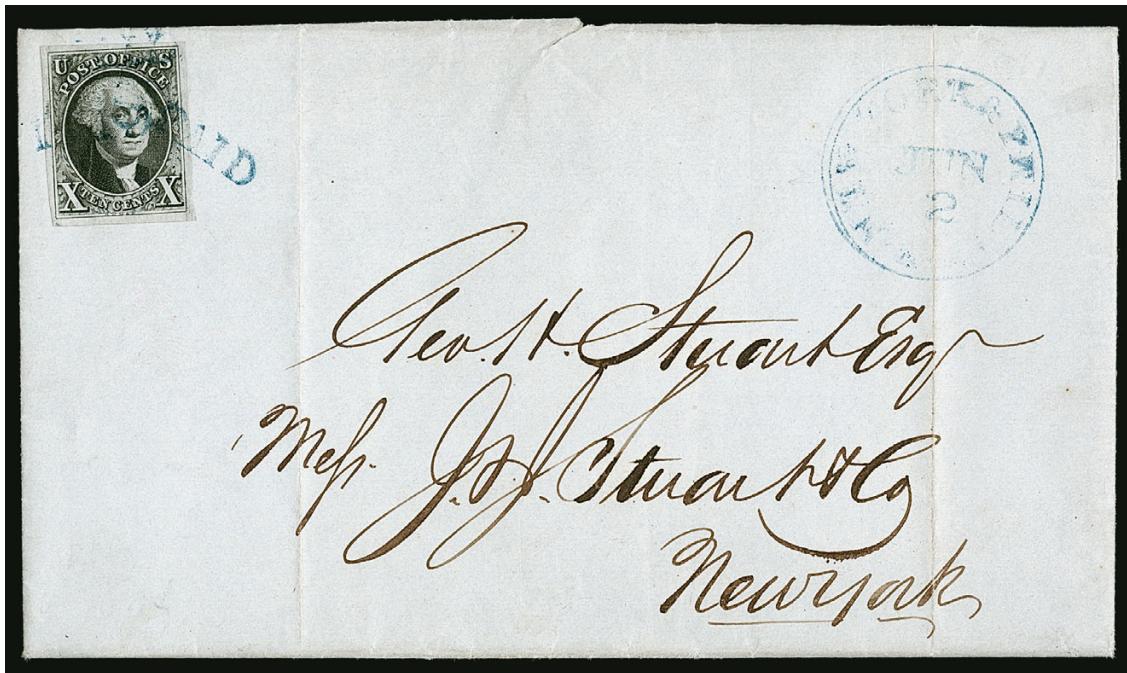 U S
POST OFFICE
X TEN CENTS X
NEW YORK & PHIL
JUN
2
Geo. H. Stuart Esq
Mess. J. & J. Stuart & Co
New York